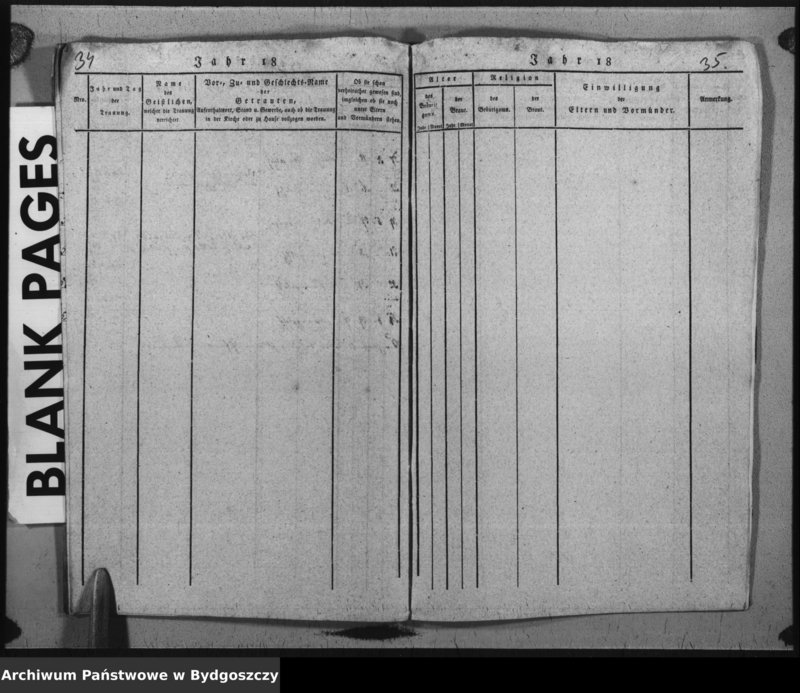 34
Jahr 18
Nro.
Jahr und Tag
der
Trauung.
Name
des
Geistlichen,
welcher die Trauung
verrichtet
Vor-, Zu- und Geschlechts-Name
der
Getrauten,
Aufenthaltsort, Stand u. Gewerbe, auch ob die Trauung
in der Kirche oder zu Hause vollzogen worden.
Ob sie schon
verheirathet gewesen sind,
imgleichen ob sie noch
unter Eltern
und Vormündern stehen.
Jahr 18
35.
Alter
des
Bräutigams.
Jahr
Monat
der
Braut.
Jahr
Monat
Religion
des
Bräutigams.
der
Braut.
Einwilligung
der
Eltern und Vormünder.
Anmerkung.
BLANK PAGES
Archiwum Państwowe w Bydgoszczy